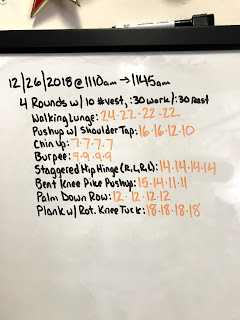 12/26/2018 @ 1110am → 1145am
4 Rounds w/ 10 # vest, :30 work/:30 Rest
Walking Lunge: 24·22·22·22
Pushup w/ Shoulder Tap: 16·16·12·10
Chin Up: 7·7·7·7
Burpee: 9·9·9·9
Staggered Hip Hinge (R,L,R,L): 14·14·14·14
Bent Knee Pike Pushup: 15·14·11·11
Palm Down Row: 12·12·12·12
Plank w/ Rot. Knee Tuck: 18·18·18·18